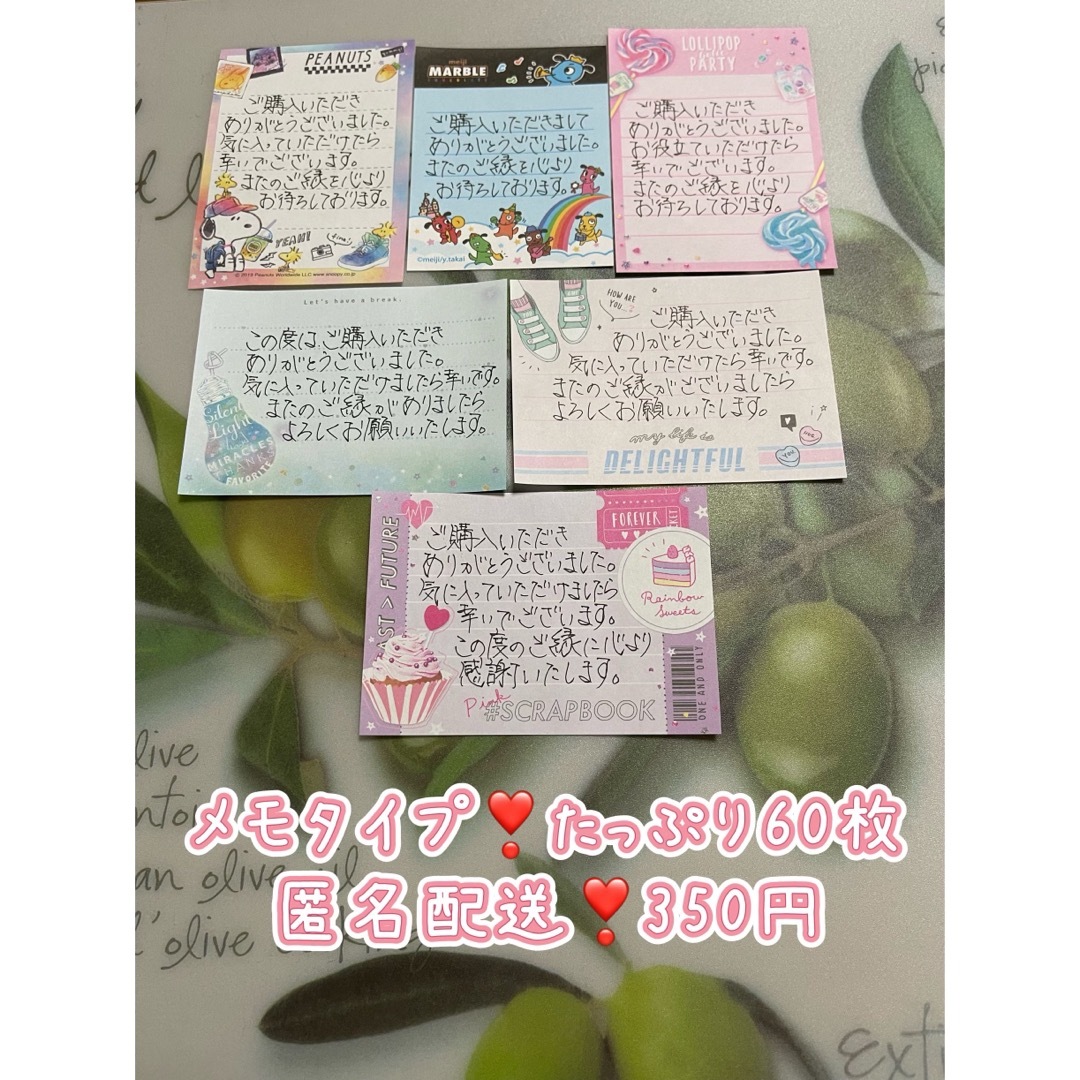 PEANUTS
ご購入いただき
ありがとうございました。
気に入っていただけたら
幸いでございます。
またのご縁を心より
お待ちしております。
YEAH!
© 2019 Peanuts Worldwide LLC www.snoopy.co.jp
meiji
MARBLE
ご購入いただきまして
ありがとうございました。
またのご縁を心より
お待ちしております。
©meiji/y.takai
LOLLIPOP
PARTY
ご購入いただき
ありがとうございました。
お役立ていただけたら
幸いでございます。
またのご縁を心より
お待ちしております。
Let's have a break.
この度は、ご購入いただき
ありがとうございました。
気に入っていただけましたら幸いです。
またのご縁がありましたら
よろしくお願いいたします。
Silent
Light
MIRACLES
THANKS
FAVORITE
HOW ARE
YOU...?
ご購入いただき
ありがとうございました。
気に入っていただけたら幸いです。
またのご縁がございましたら
よろしくお願いいたします。
my life is
DELIGHTFUL
YOU
PAST > FUTURE
FOREVER
TICKET
ご購入いただき
ありがとうございました。
気に入っていただけましたら
幸いでございます。
この度のご縁に心より
感謝いたします。
Rainbow
Sweets
ONE AND ONLY
Pink
#SCRAPBOOK
メモタイプ❣たっぷり60枚
匿名配送❣350円
live
an olive oil
l'olive